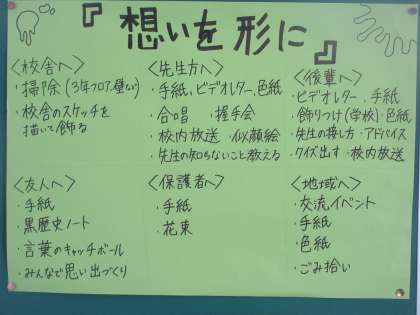 『想いを形に』
〈校舎へ〉
・掃除(3年フロア、壁など)
・校舎のスケッチを
描いて飾る
〈先生方へ〉
・手紙、ビデオレター、色紙
・合唱 ・握手会
・校内放送 ・似顔絵
・先生の知らないこと教える
〈後輩へ〉
・ビデオレター、手紙
・飾りつけ(学校)・色紙
・先生の接し方・アドバイス
・クイズ出す ・校内放送
〈友人へ〉
・手紙
・黒歴史ノート
・言葉のキャッチボール
・みんなで思い出づくり
〈保護者へ〉
・手紙
・花束
〈地域へ〉
・交流イベント
・手紙
・色紙
・ごみ拾い